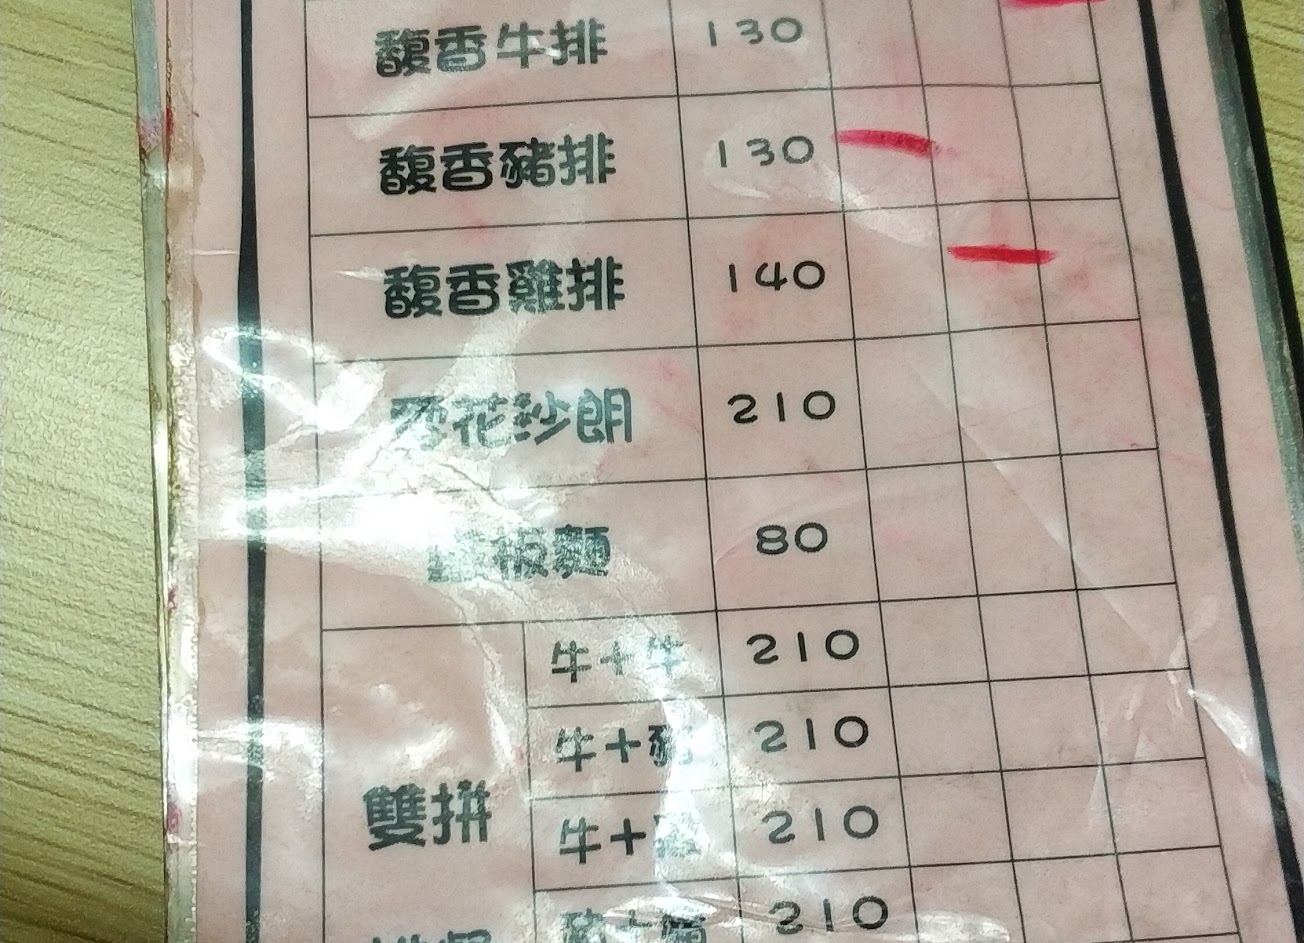 馥香牛排 130
馥香豬排 130
馥香雞排 140
花紗朗 210
板麵 80
牛+牛 210
牛+豬 210
雙拼
牛+ 210
豬+ 210